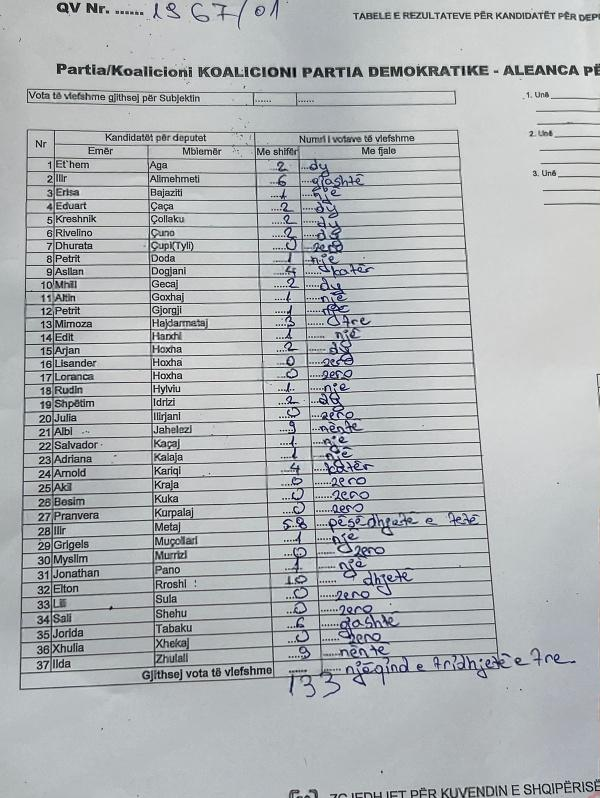 QV Nr. ...... 1967/01
TABELE E REZULTATEVE PËR KANDIDATËT PËR DEPU
Partia/Koalicioni KOALICIONI PARTIA DEMOKRATIKE - ALEANCA PË
Vota të vlefshme gjithsej për Subjektin ...... ......
1. Unë
2. Unë
3. Unë
Nr Kandidatët për deputet Numri i votave të vlefshme
Emër Mbiemër Me shifër Me fjalë
1 Et'hem Aga 2 dy
2 Ilir Alimehmeti 6 gjashtë
3 Erisa Bajaziti 1 një
4 Eduart Çaça 2 dy
5 Kreshnik Çollaku 2 dy
6 Rivelino Çuno 2 dy
7 Dhurata Çupi(Tyli) 0 zero
8 Petrit Doda 1 një
9 Asllan Dogjani 4 katër
10 Mhill Gecaj 2 dy
11 Altin Goxhaj 1 një
12 Petrit Gjorgji 1 një
13 Mimoza Hajdarmataj 3 tre
14 Edit Harxhi 1 një
15 Arjan Hoxha 2 dy
16 Lisander Hoxha 0 zero
17 Loranca Hoxha 0 zero
18 Rudin Hylviu 1 një
19 Shpëtim Idrizi 2 dy
20 Julia Ilirjani 0 zero
21 Albi Jahelezi 9 nëntë
22 Salvador Kaçaj 1 një
23 Adriana Kalaja 1 një
24 Arnold Kariqi 4 katër
25 Akil Kraja 0 zero
26 Besim Kuka 0 zero
27 Pranvera Kurpalaj 0 zero
28 Ilir Metaj 58 pësëdhjetë e tetë
29 Grigels Muçollari 1 një
30 Myslim Murrizi 0 zero
31 Jonathan Pano 1 një
32 Elton Rroshi 10 dhjetë
33 Lili Sula 0 zero
34 Sali Shehu 0 zero
35 Jorida Tabaku 6 gjashtë
36 Xhulia Xhekaj 0 zero
37 Ilda Zhulali 9 nëntë
Gjithsej vota të vlefshme 133 njëqind e tridhjetë e tre
ZGJEDHJET PËR KUVENDIN E SHQIPËRISË